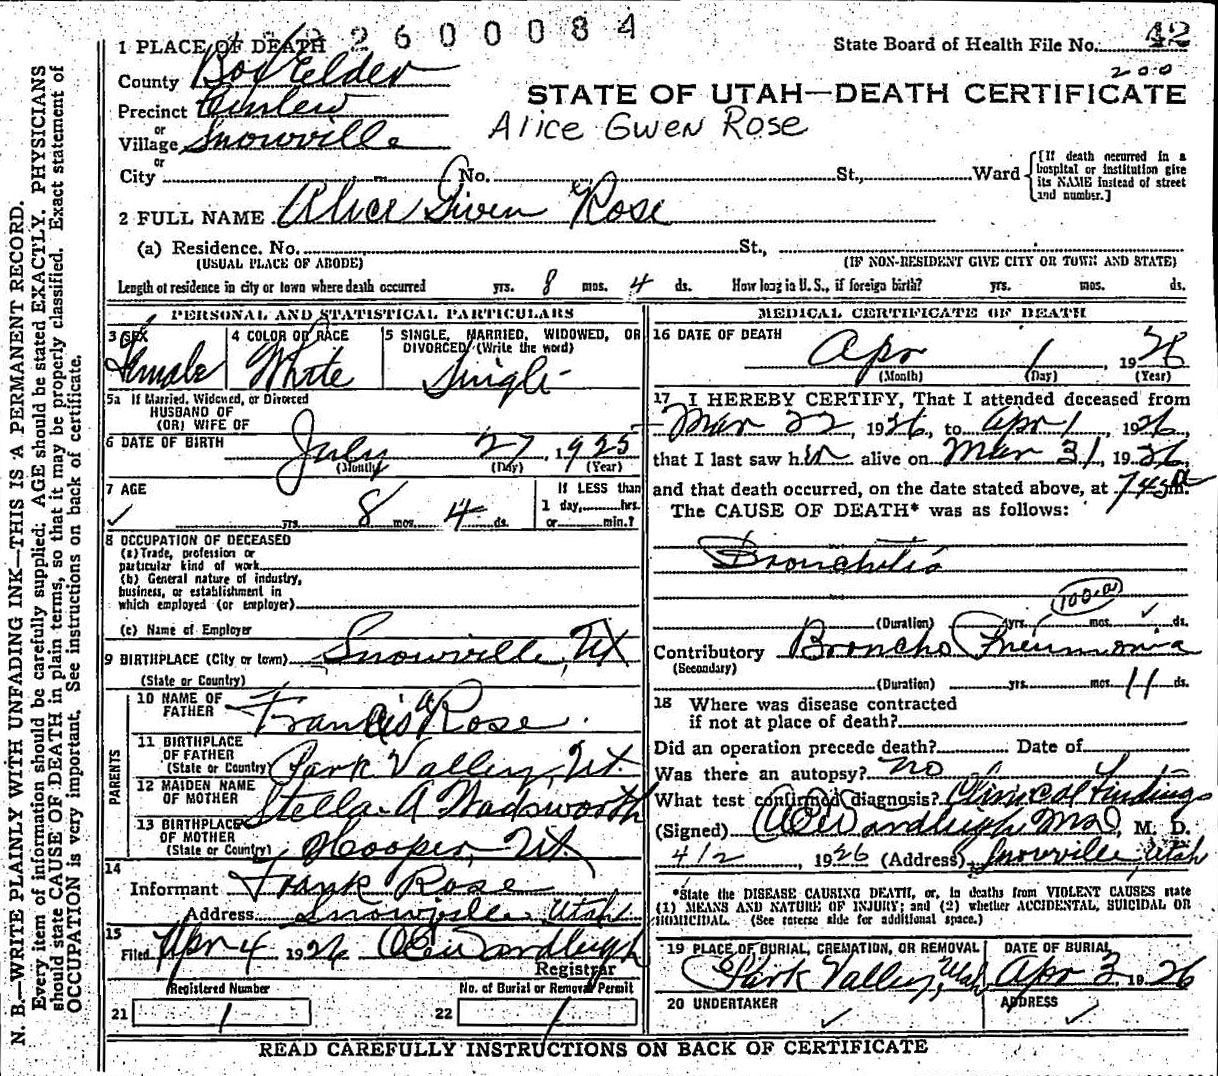 2600084
1 PLACE OF DEATH
State Board of Health File No. 42
200
County Box Elder
STATE OF UTAH—DEATH CERTIFICATE
Precinct
Alice Gwen Rose
or
Village Snowville
or
City No. St., Ward
[If death occurred in a hospital or institution give its NAME instead of street and number.]
2 FULL NAME Alice Gwen Rose
(a) Residence. No. St.,
(USUAL PLACE OF ABODE) (IF NON-RESIDENT GIVE CITY OR TOWN AND STATE)
Length of residence in city or town where death occurred yrs. 8 mos. 4 ds. How long in U. S., if foreign birth? yrs. mos. ds.
PERSONAL AND STATISTICAL PARTICULARS
3 SEX 4 COLOR OR RACE 5 SINGLE, MARRIED, WIDOWED, OR DIVORCED (Write the word)
Female White Single
5a If Married, Widowed, or Divorced
HUSBAND OF
(OR) WIFE OF
6 DATE OF BIRTH July 27, 1925
(Month) (Day) (Year)
7 AGE
If LESS than
1 day, hrs.
yrs. 8 mos. 4 ds. or min.?
8 OCCUPATION OF DECEASED
(a) Trade, profession or
particular kind of work
(b) General nature of industry,
business, or establishment in
which employed (or employer)
(c) Name of Employer
9 BIRTHPLACE (City or town) Snowville, Ut
(State or Country)
PARENTS
10 NAME OF
FATHER Francis A Rose
11 BIRTHPLACE
OF FATHER
(State or Country) Park Valley, Ut.
12 MAIDEN NAME
OF MOTHER Stella A Wadsworth
13 BIRTHPLACE
OF MOTHER
(State or Country) Hooper, Ut
14
Informant Frank Rose
Address Snowville, Utah
15
Filed Apr 4 1926
Registrar
Registered Number No. of Burial or Removal Permit
21 1 22 1
MEDICAL CERTIFICATE OF DEATH
16 DATE OF DEATH
Apr 1, 1926
(Month) (Day) (Year)
17 I HEREBY CERTIFY, That I attended deceased from
Mar 22, 1926, to Apr 1, 1926,
that I last saw her alive on Mar 31, 1926,
and that death occurred, on the date stated above, at 745 m.
The CAUSE OF DEATH* was as follows:
Bronchitis
(Duration) yrs. mos. ds.
Contributory Broncho Pneumonia
(Secondary)
(Duration) yrs. mos. 11 ds.
18 Where was disease contracted
if not at place of death?
Did an operation precede death? Date of
Was there an autopsy? no
What test confirmed diagnosis? Clinical Findings
(Signed) M. D.
4/2, 1926 (Address) Snowville, Utah
*State the DISEASE CAUSING DEATH, or, in deaths from VIOLENT CAUSES state
(1) MEANS AND NATURE OF INJURY; and (2) whether ACCIDENTAL, SUICIDAL OR
HOMICIDAL. (See reverse side for additional space.)
19 PLACE OF BURIAL, CREMATION, OR REMOVAL DATE OF BURIAL
Park Valley, Utah, Apr 3, 1926
20 UNDERTAKER ADDRESS
READ CAREFULLY INSTRUCTIONS ON BACK OF CERTIFICATE
N. B.—WRITE PLAINLY WITH UNFADING INK—THIS IS A PERMANENT RECORD.
Every item of information should be carefully supplied. AGE should be stated EXACTLY. PHYSICIANS
should state CAUSE OF DEATH in plain terms, so that it may be properly classified. Exact statement of
OCCUPATION is very important. See instructions on back of certificate.